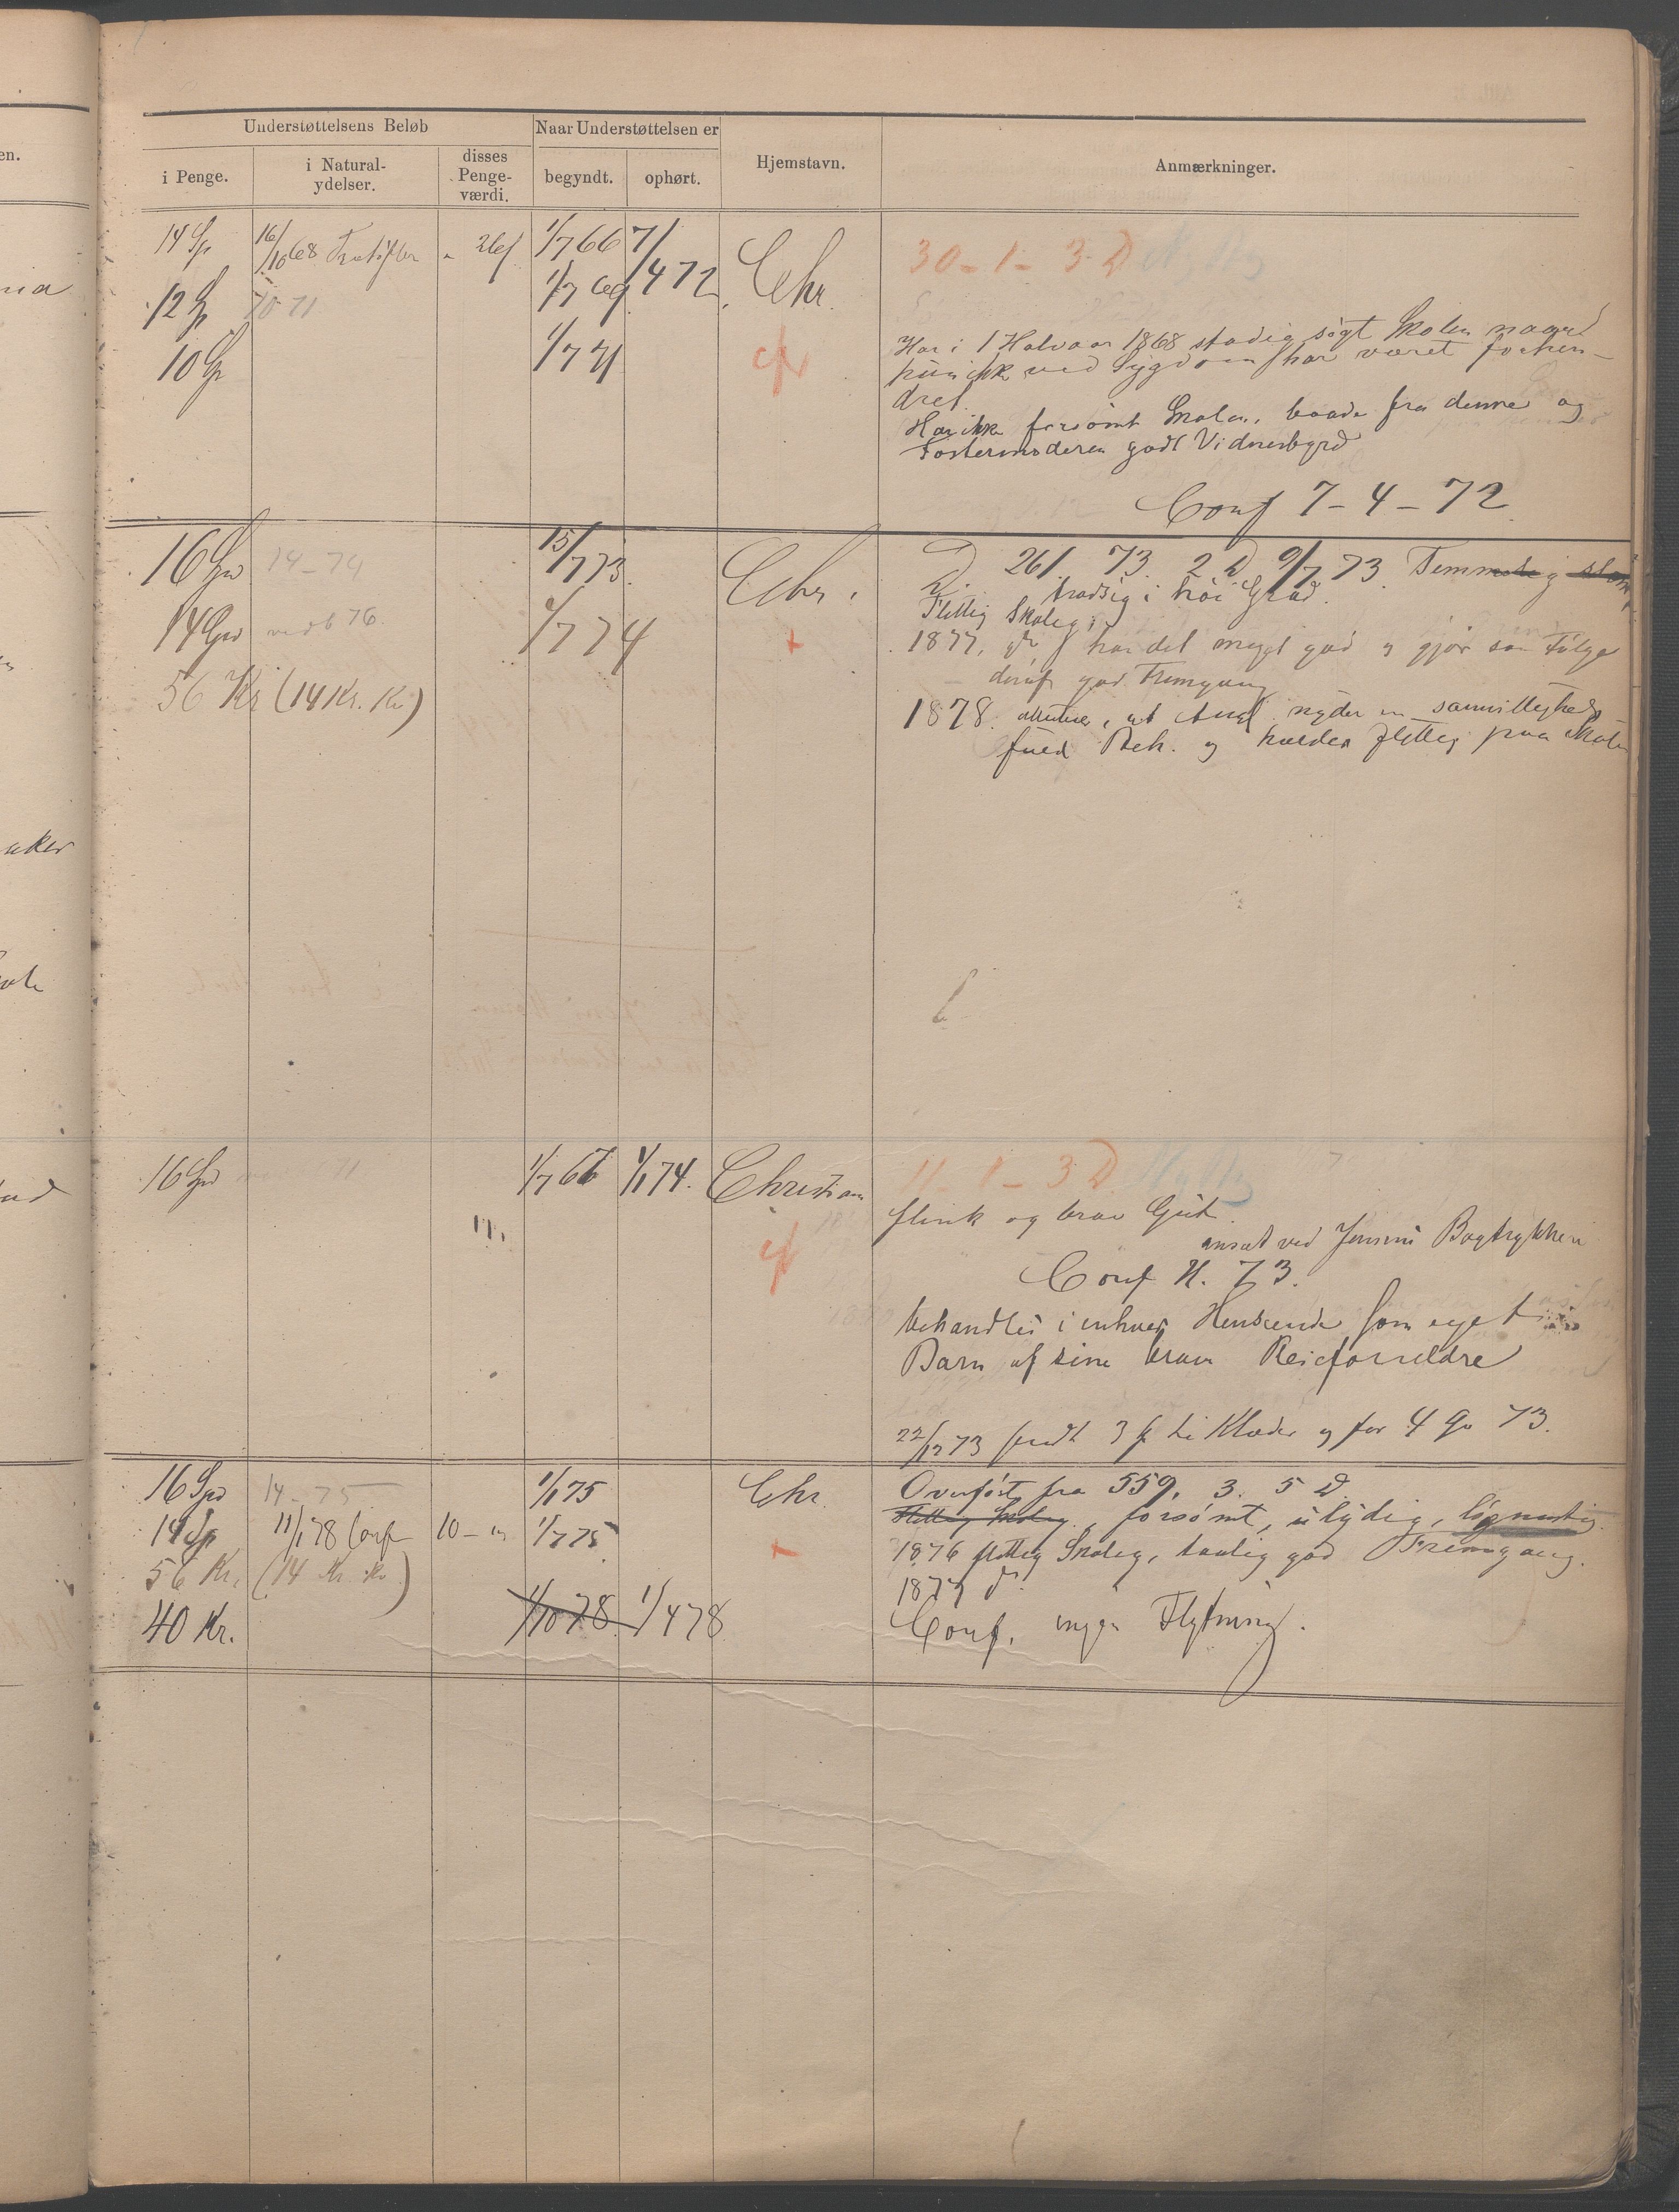 Understøttelsens Beløb
Naar Understøttelsen er
i Penge.
i Natural-
ydelser.
disses
Penge-
værdi.
begyndt.
ophørt.
Hjemstavn.
Anmærkninger.
en.
14 Sp 16/10 68 1/7 66 7/4 72 Chr.
12 Sp 70 71 1/7 69
10 Sp 1/7 71
30-1-3 D
Har i 1 Halvaar 1868 stadig søgt Skolen naar
hun ikke ved Sygdom har været forhen-
dret.
Har ikke forsømt Skolen, baade fra denne og
Fostermoderen godt Vidnesbyrd
Conf 7-4-72
16 Spd 14-74 15/7 73 Chr.
14 Spd 76 1/7 74
56 Kr (14 Kr. Kv)
D 261 73 2 D 9/7 73. Temmelig
tradsig i høi Grad.
Flittig Skoleg,
1877, har det meget god og gjør som Følge
deraf god Fremgang
1878. at nyder en samvittigheds
fuld Beh. og holdes flittig paa Skolen
16 Spd 1/7 67 1/1 74. Christian
11-1-3 D
flink og brav Gut.
ansat ved Jensens Bogtrykkeri
Conf H. 73.
behandles i enhver Henseende som eget
Barn af sine brave Pleieforældre
22/12 73 sendt 3 til Klæder og for 4 Qv 73.
16 Spd 14-75 1/1 75 Chr.
14 Sp 11/1 78 Conf 10- 1/7 75
56 Kr. (14 Kr. Kv.)
40 Kr. 1/10 78 1/4 78
Overført fra 559. 3. 5 D
Flittig Skoleg., forsømt, ulydig, løgnagtig
1876 flittig Skoleg, taalig god Fremgang.
1877 do
Conf. ingen Flytning.